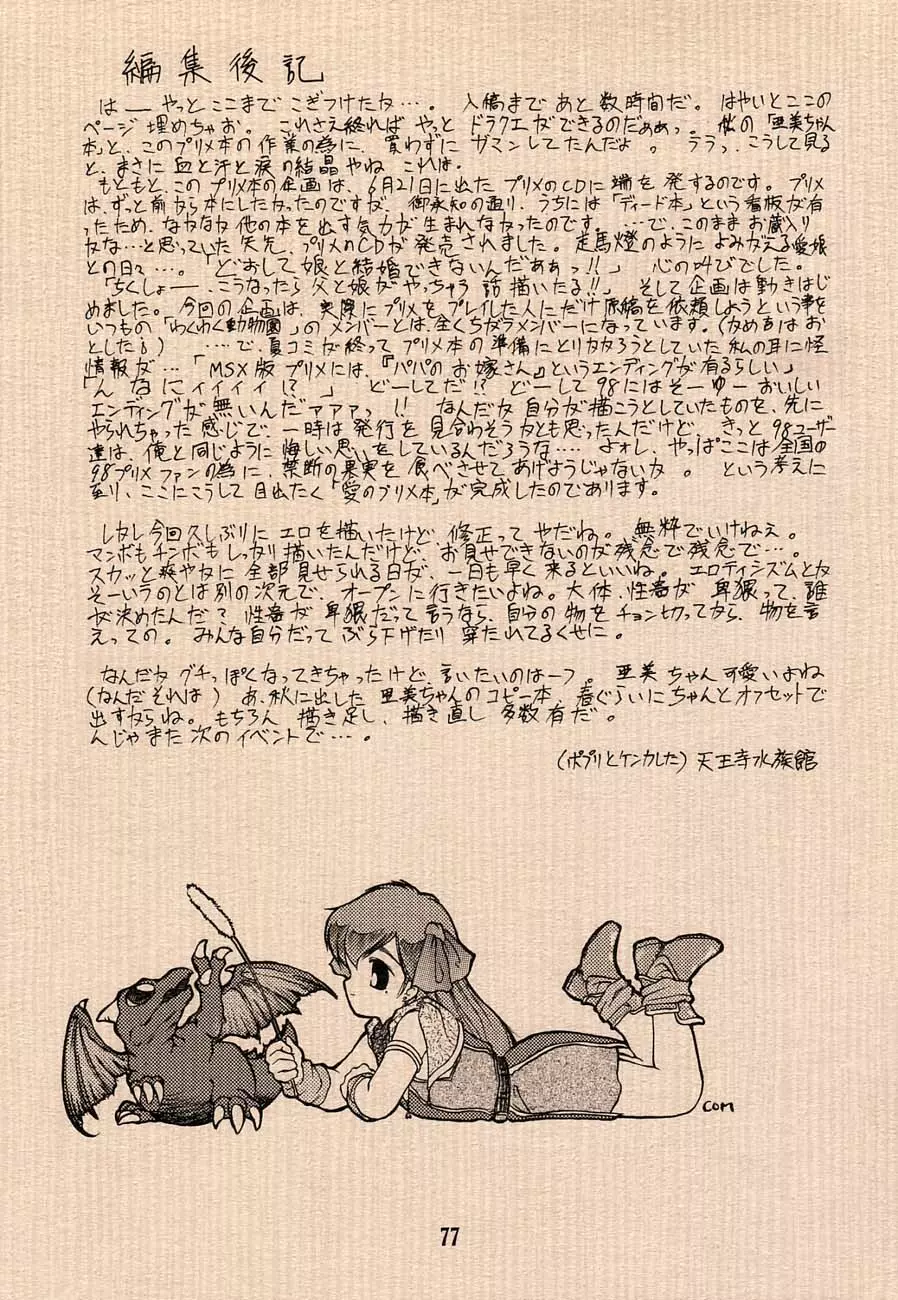 編集後記
は――やっとここまでこぎつけたか…。 入稿まであと数時間だ。 はやいとここの
ページ埋めちゃお。 これさえ終れば やっと ドラクエができるのだぁぁっ。 他の「亜美ちゃん
本」と、このプリメ本の作業の為に、買わずに ガマンしてたんだよ 。 ララっ、こうして見る
と、まさに血と汗と涙の結晶やね これは。
もともと、このプリメ本の企画は、6月21日に出た プリメのCDに端を発するのです。 プリメ
は、ずっと前から本にしたかったのですが、御承知の通り、うちには「ディード本」という看板が有
ったため、なかなか他の本を出す気力が生まれなかったのです。 …で、このままお蔵入り
かな…と思っていた矢先、プリメのCDが発売されました。走馬燈のように よみがえる愛娘
との日々…。「どおして娘と結婚できないんだぁぁっ!!」 心の叫びでした。
「ちくしょー、こうなったら父と娘がやっちゃう話描いたる!!」 そして企画は動きはじ
めました。今回の企画は、実際にプリメをプレイした人にだけ原稿を依頼しようという事で
いつもの「わくわく動物園」のメンバーとは、全くちがうメンバーになっています。(ためきちはお
とした) …で、夏コミが終って プリメ本の準備にとりかかろうとしていた私の耳に怪
情報が…「MSX版プリメには、『パパのお嫁さん』というエンディングが有るらしい」
「んなにィィィィ!?」 どーしてだ!? どーして98にはそーゆーおいしい
エンディングが無いんだァァァっ!! なんだか自分が描こうとしていたものを、先に
やられちゃった感じで、一時は発行を見合わそうかとも思ったんだけど、きっと98ユーザー
達は、俺と同じように悔しい思いをしているんだろうな…… よォし、やっぱここは全国の
98プリメファンの為に、禁断の果実を食べさせてあげようじゃないか 。 という考えに
至り、ここにこうして目出たく「愛のプリメ本」が完成したのであります。
しかし今回久しぶりに エロを描いたけど、修正って やだね。 無粋でいけねえ。
マンボもチンボもしっかり描いたんだけど、お見せできないのが残念で残念で…。
スカッと爽やかに全部見せられる日が、一日も早く来るといいね。エロティシズムとか
そーいうのとは別の次元で、オープンに行きたいよね。大体、性器が 卑猥って、誰
が決めたんだ? 性器が卑猥だって言うなら、自分の物をチョン切ってから、物を言
えっての。 みんな自分だって ぶら下げたり 穿たれてるくせに。
なんだか グチっぽくなってきちゃったけど、言いたいのは一つ。 亜美ちゃん可愛いよね
(なんだそれは) あ、秋に出した 亜美ちゃんのコピー本、春ぐらいにちゃんとオフセットで
出すからね。もちろん 描き足し、描き直し 多数有だ。
んじゃまた次のイベントで…。
(ポプリとケンカした) 天王寺水族館
COM
77